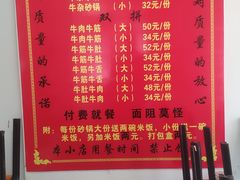 牛杂砂锅 （小） 32元/份
双拼
牛肉牛筋 （大） 50元/份
牛肉牛筋 （小） 34元/份
牛筋牛肚 （大） 52元/份
牛筋牛肚 （小） 34元/份
牛筋牛舌 （大） 52元/份
牛筋牛舌 （小） 34元/份
牛肚牛肉 （大） 48元/份
牛肚牛肉 （小） 34元/份
付费就餐 面阻莫怪
附：每份砂锅大份送两碗米饭，小份送一碗
米饭，另加米饭 元，打包盒 元。
本小店用餐时间 禁止
质量的承诺
质量的放心